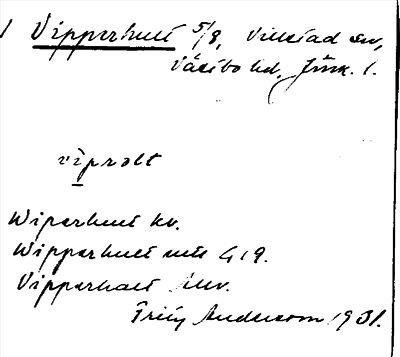 Vipperhult 5/8, Villstad sn,
Västbo hd, Jönk. l.
viprølt
Wiperhult kv.
Wipperhult mtl 419.
Vipperhult
Fritz Anderson 1931.